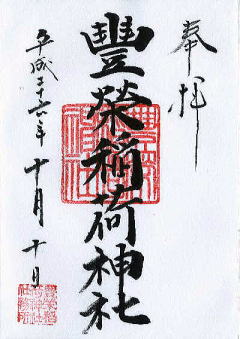 奉拝
豐榮稲荷神社
平成二十六年十月十日